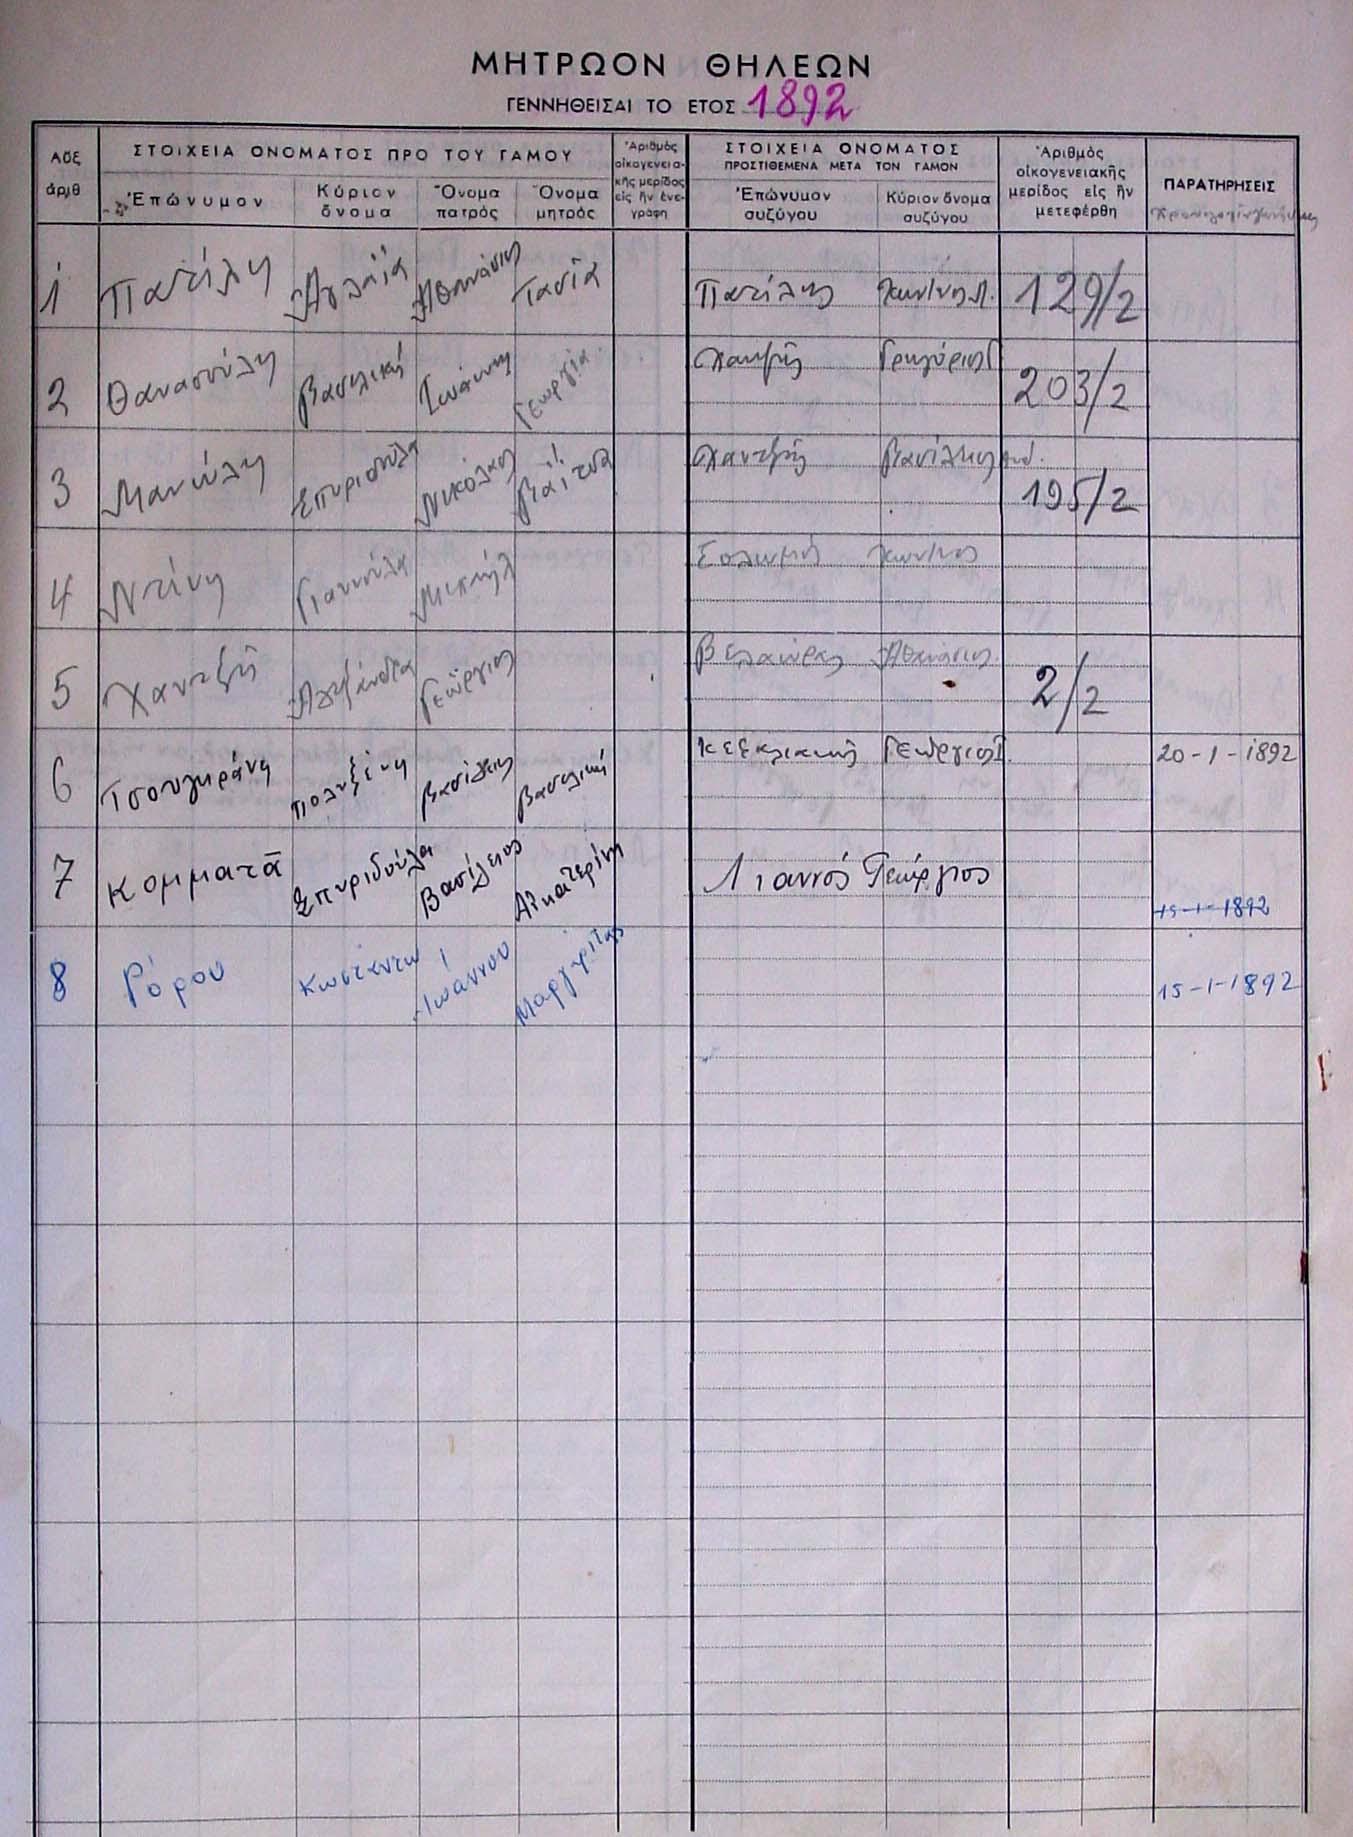 ΜΗΤΡΩΟΝ ΘΗΛΕΩΝ
ΓΕΝΝΗΘΕΙΣΑΙ ΤΟ ΕΤΟΣ 1892
Αὔξ. ἀριθ
ΣΤΟΙΧΕΙΑ ΟΝΟΜΑΤΟΣ ΠΡΟ ΤΟΥ ΓΑΜΟΥ
Ἐπώνυμον
Κύριον ὄνομα
Ὄνομα πατρός
Ὄνομα μητρός
Ἀριθμὸς οἰκογενειακῆς μερίδος εἰς ἣν ἐνεγράφη
ΣΤΟΙΧΕΙΑ ΟΝΟΜΑΤΟΣ
ΠΡΟΣΤΙΘΕΜΕΝΑ ΜΕΤΑ ΤΟΝ ΓΑΜΟΝ
Ἐπώνυμον συζύγου
Κύριον ὄνομα συζύγου
Ἀριθμὸς οἰκογενειακῆς μερίδος εἰς ἣν μετεφέρθη
ΠΑΡΑΤΗΡΗΣΕΙΣ
1 Πατίλη Ἀγλαΐα Ἀθανάσιος Τασία Πατίλης Κων/νος Α. 129/2
2 Θανασούλη Βασιλική Ἰωάννης Γεωργία Χαντζῆς Γρηγόριος Γ 203/2
3 Μανώλη Σπυριδούλα Νικόλαος Βάϊτσα Χαντζῆς Βασίλειος 195/2
4 Ντίνη Γιαννούλα Μιχαήλ Κων/νος
5 Χαντζῆ Ἀλεξάνδρα Γεώργιος Βελαώρας Ἀθανάσιος 2/2
6 Τσουγκράνη Πολυξένη Βασίλειος Βασιλική Γεώργιος Ι. 20-1-1892
7 Κομματᾶ Σπυριδούλα Βασίλειος Αἰκατερίνη Λιαννός Γεώργιος 15-1-1892
8 Ρόρου Κωστάντω Ἰωάννου Μαργαρίτας 15-1-1892